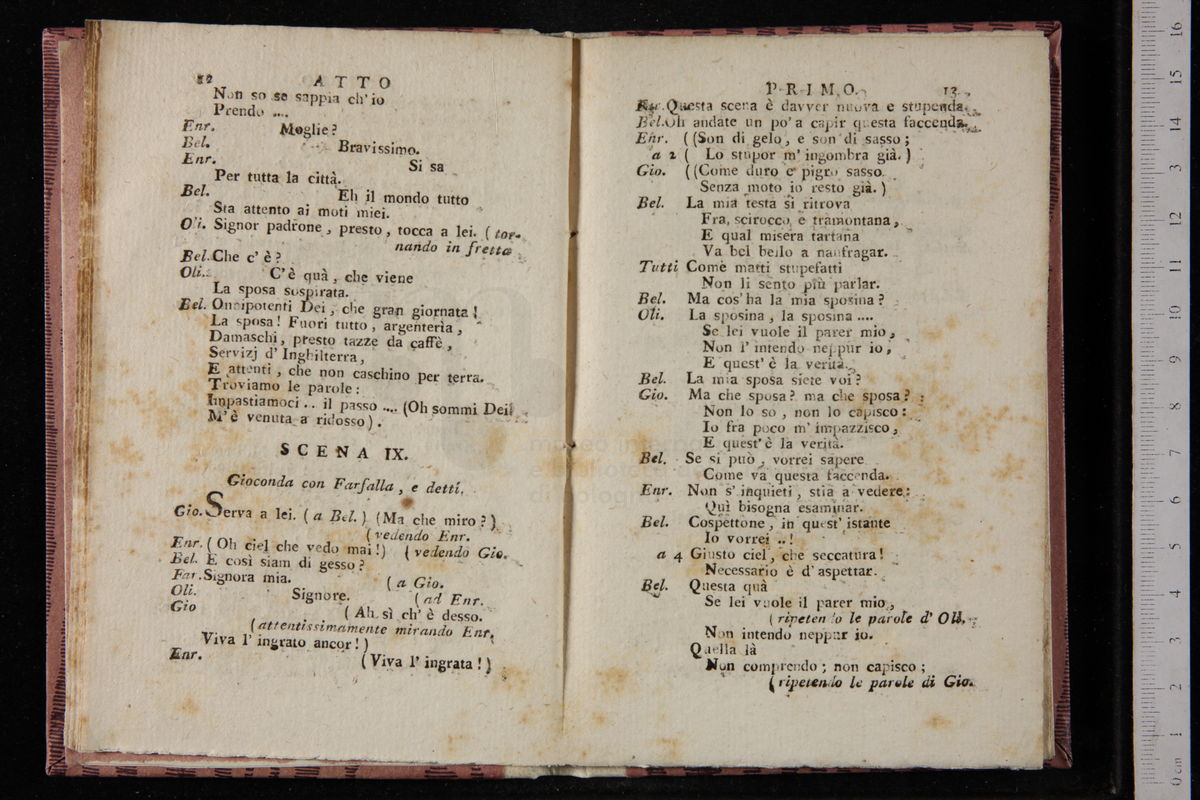 12 ATTO
Non so se sappia ch'io
Prendo ....
Enr. Moglie?
Bel. Bravissimo.
Enr. Si sa
Per tutta la città.
Bel. Eh il mondo tutto
Sta attento ai moti miei.
Oli. Signor padrone, presto, tocca a lei. (tor-
nando in fretta
Bel. Che c'è?
Oli. C'è quà, che viene
La sposa sospirata.
Bel. Onnipotenti Dei, che gran giornata!
La sposa! Fuori tutto, argenteria,
Damaschi, presto tazze da caffè,
Servizj d'Inghilterra,
E attenti, che non caschino per terra.
Troviamo le parole:
Impastiamoci .. il passo .... (Oh sommi Dei!
M'è venuta a ridosso).
SCENA IX.
Gioconda con Farfalla, e detti.
Gio. Serva a lei. (a Bel.) (Ma che miro?)
(vedendo Enr.
Enr. (Oh ciel che vedo mai!) (vedendo Gio.
Bel. E così siam di gesso?
Far. Signora mia. (a Gio.
Oli. Signore. (ad Enr.
Gio (Ah sì ch'è desso.
(attentissimamente mirando Enr.
Viva l'ingrato ancor!)
Enr. (Viva l'ingrata!)
PRIMO. 13
Questa scena è davver nuova e stupenda.
Bel. Oh andate un po' a capir questa faccenda.
Enr. ((Son di gelo, e son di sasso;
a 2 ( Lo stupor m'ingombra già.)
Gio. ((Come duro e pigro sasso
Senza moto io resto già.)
Bel. La mia testa si ritrova
Fra scirocco, e tramontana,
E qual misera tartana
Va bel bello a naufragar.
Tutti Come matti stupefatti
Non li sento più parlar.
Bel. Ma cos'ha la mia sposina?
Oli. La sposina, la sposina ....
Se lei vuole il parer mio,
Non l'intendo neppur io,
E quest'è la verità.
Bel. La mia sposa siete voi?
Gio. Ma che sposa? ma che sposa?
Non lo so, non lo capisco:
Io fra poco m'impazzisco,
E quest'è la verità.
Bel. Se si può, vorrei sapere
Come va questa faccenda.
Enr. Non s'inquieti, stia a vedere:
Quì bisogna esaminar.
Bel. Cospettone, in quest'istante
Io vorrei ..!
a 4 Giusto ciel, che seccatura!
Necessario è d'aspettar.
Bel. Questa quà
Se lei vuole il parer mio,
(ripetendo le parole d'Oli.
Non intendo neppur io.
Quella là
Non comprendo; non capisco;
(ripetendo le parole di Gio.
museo interna
16
15
14
13
12
11
10
9
8
7
6
5
4
3
2
1
0 cm